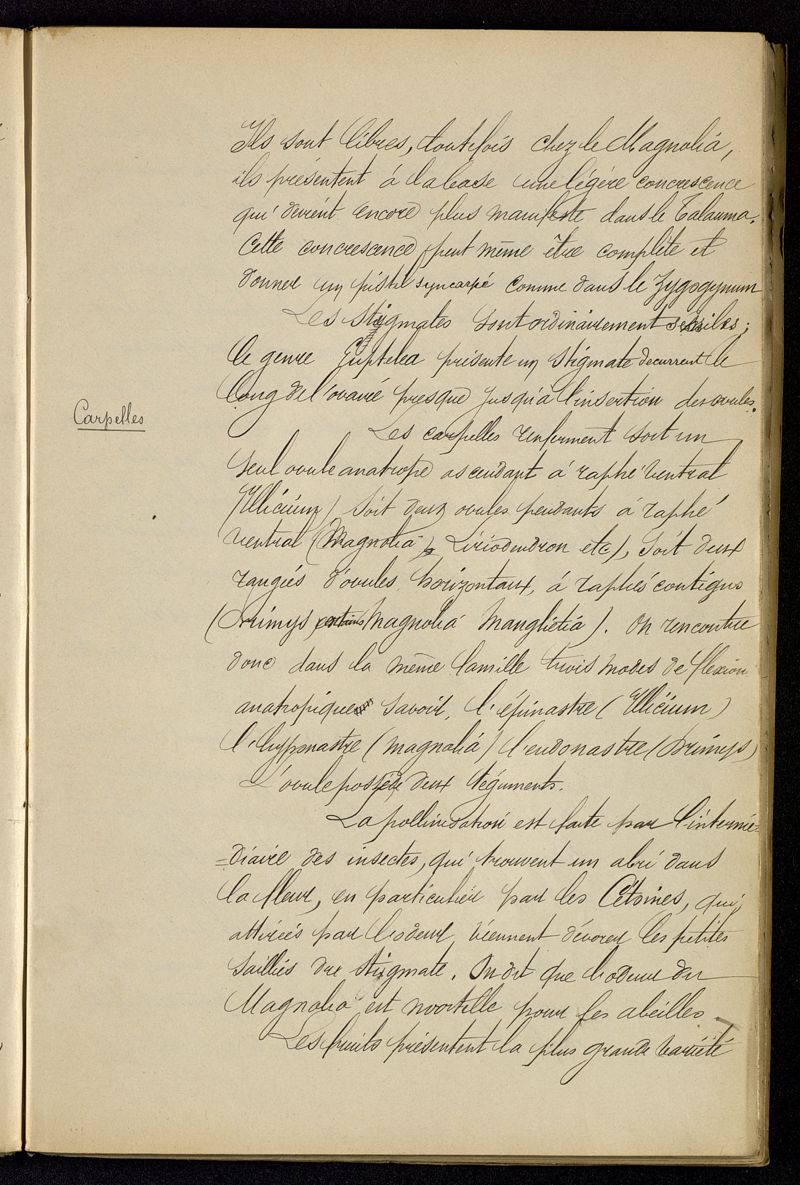 Ils sont libres, toutefois chez le Magnolia,
ils présentent à la base une légère concrescence
qui devient encore plus manifeste dans le Talauma.
Cette concrescence peut même être complète et
donner un pistil syncarpé comme dans le Zygogynum
Les stigmates sont ordinairement sessiles ;
le genre Euptelea présente un stigmate decurrent le
long de l'ovaire presque jusqu'à l'insertion des ovules.
Carpelles
Les carpelles renferment soit un
seul ovule anatrope ascendant à raphé ventral
(Illicium) soit deux ovules pendants à raphé
ventral (Magnolia, Liriodendron etc), soit deux
rangées d'ovules horizontaux, à raphés contigus
(Drimys Magnolia Manglietia). On rencontre
donc dans la même famille trois modes de flexion
anatropique savoir, l'épinastre (Illicium)
l'hyponastre (Magnolia) l'exonastre (Drimys)
L'ovule possède deux téguments.
La pollinisation est faite par l'intermé-
=diaire des insectes, qui trouvent un abri dans
la fleur, en particulier par les Cétoines, qui,
attirées par l'odeur viennent dévorer les petites
saillies du stigmate. On dit que l'odeur du
Magnolia est mortelle pour les abeilles
Les fruits présentent la plus grande variété